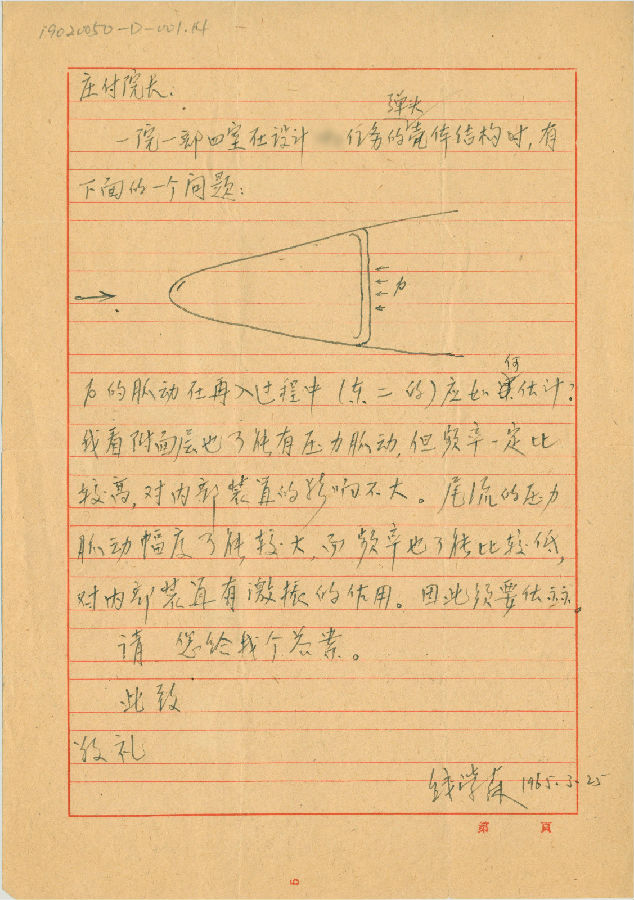 19020050-D-001.14
庄付院长:
弹头
一院一部四室在设计 任务的壳体结构时,有
下面的一个问题:
p
p的脉动在再入过程中(东二的)应如何估计?
我看附面层也可能有压力脉动,但频率一定比
较高,对内部装置的影响不大。尾流的压力
脉动幅度可能较大,而频率也可能比较低,
对内部装置有激振的作用。因此须要估
请 您给我个答案。
此致
敬礼
钱学森 1965.3.25
第 頁